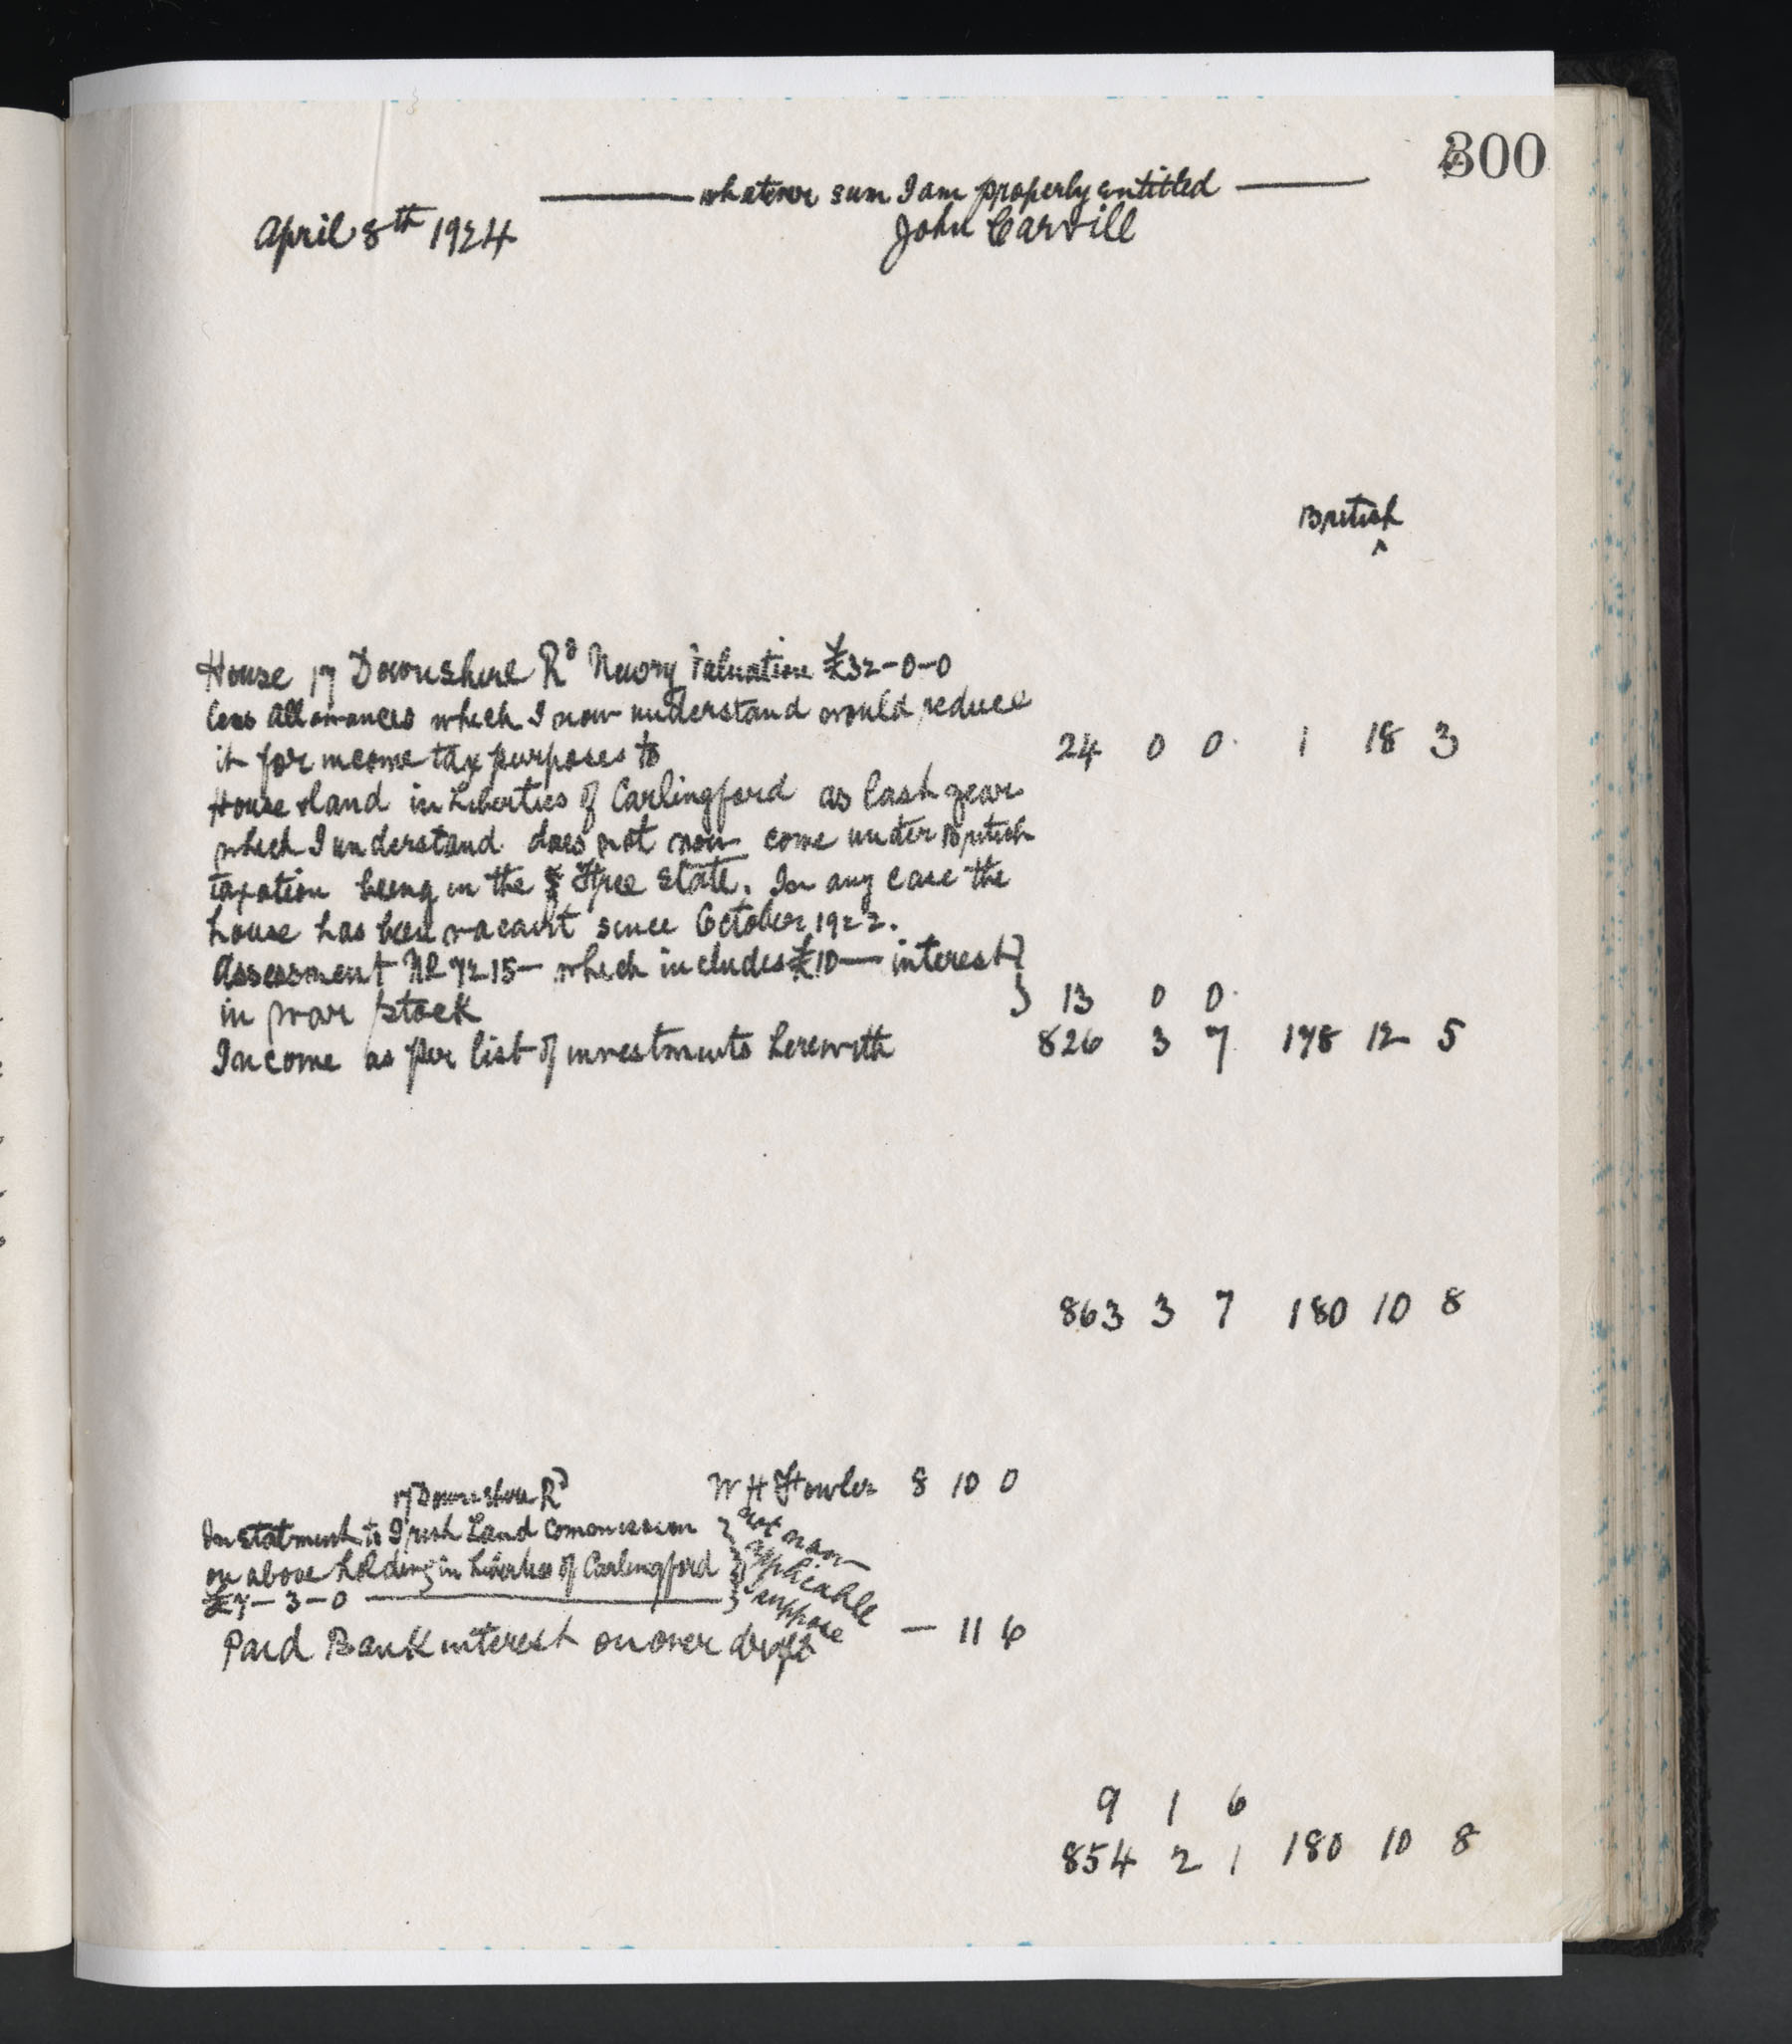 300
whatever sum I am properly entitled
April 8th 1924 John Carvill
British
^
House 17 Downshire Rd Newry Valuation £32-0-0
less allowances which I now understand would reduce
it for income tax purposes to 24 0 0 1 18 3
House & land in Liberties of Carlingford as last year
which I understand does not now come under British
taxation being in the Free State. In any case the
house has been vacant since October 1922.
Assessment NR 7215 – which includes £10 — interest }
in war stock } 13 0 0
Income as per list of investments herewith 826 3 7 178 12 5
863 3 7 180 10 8
17 Downshire Rd W H Fowler 8 10 0
Instatment to Irish Land Commission } not now
on above holding in Liberties of Carlingford } applicable
£7-3-0 } I suppose
Paid Bank interest on over draft — 11 6
9 1 6
854 2 1 180 10 8